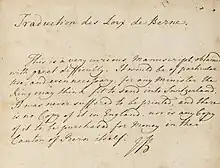 Traduction des Loix de Berne.
This is a very curious Manuscript, obtained
with great difficulty. It would be of particular
use, and even necessary, for any Minister the
King may think fit to send into Switzerland.
It was never suffered to be printed, and there
is no Copy of it in England, nor is any Copy
of it to be purchased for Money in the
Canton of Bern itself.